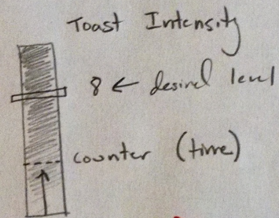 Toast Intensity
8 ← desired level
counter (time)